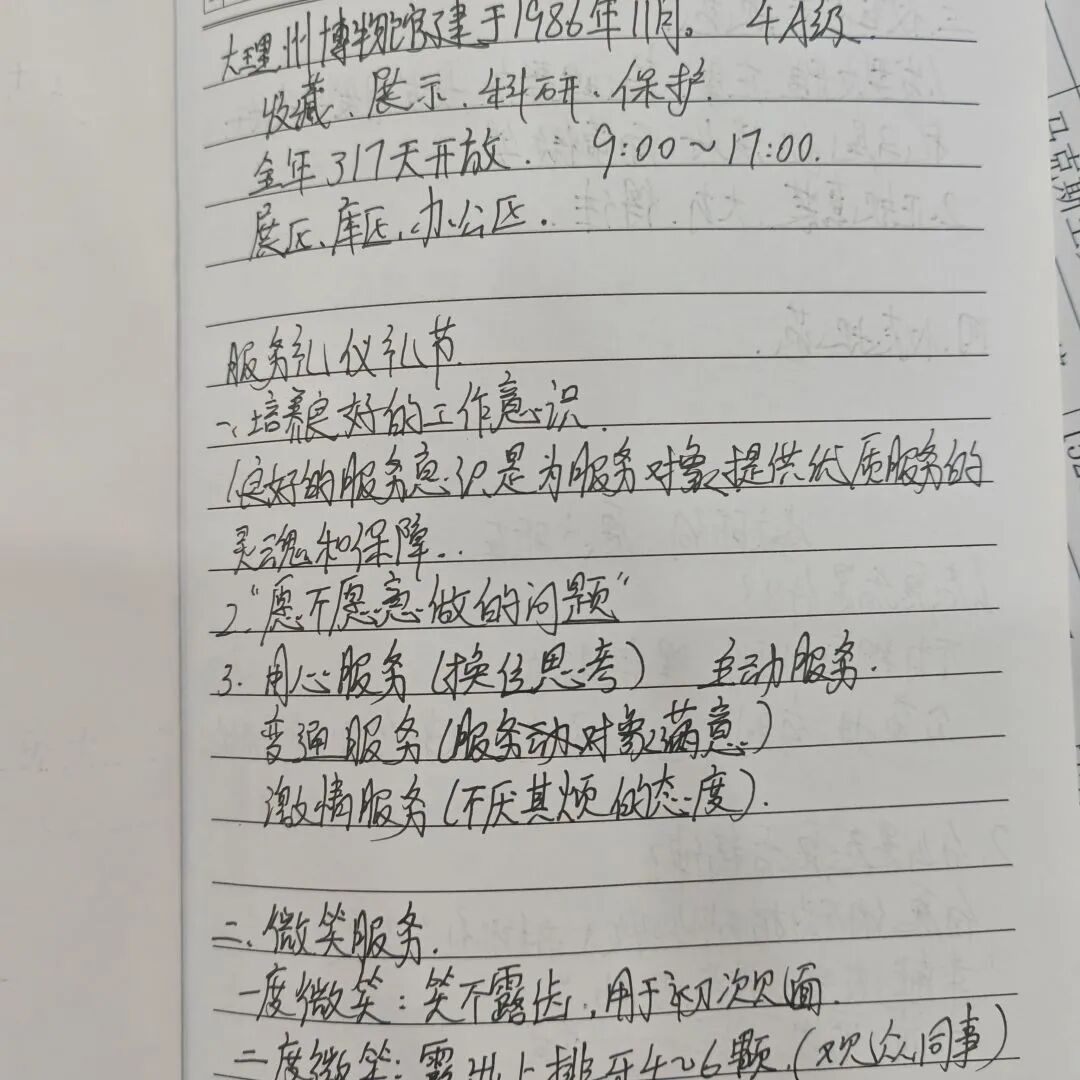 大理州博物馆建于1986年11月。 4A级.
收藏、展示、科研、保护.
全年317天开放. 9:00~17:00.
展区、库区、办公区.
服务礼仪礼节.
一、培养良好的工作意识.
1.良好的服务意识是为服务对象提供优质服务的
灵魂和保障..
2."愿不愿意做的问题"
3. 用心服务(换位思考) 主动服务.
变通服务(服务动对象满意)
激情服务(不厌其烦的态度).
二、微笑服务.
一度微笑：笑不露齿,用于初次见面.
二度微笑：露出上排牙4~6颗,(观众同事)
马克斯